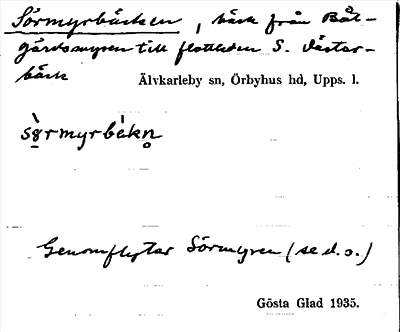 Sörmyrbäcken, bäck från Båt-
gårdsmyren till flottleden S. Väster-
bäck
Älvkarleby sn, Örbyhus hd, Upps. l.
sö̀rmyrbékn̥
Genomflytar Sörmyren (se d. o.)
Gösta Glad 1935.